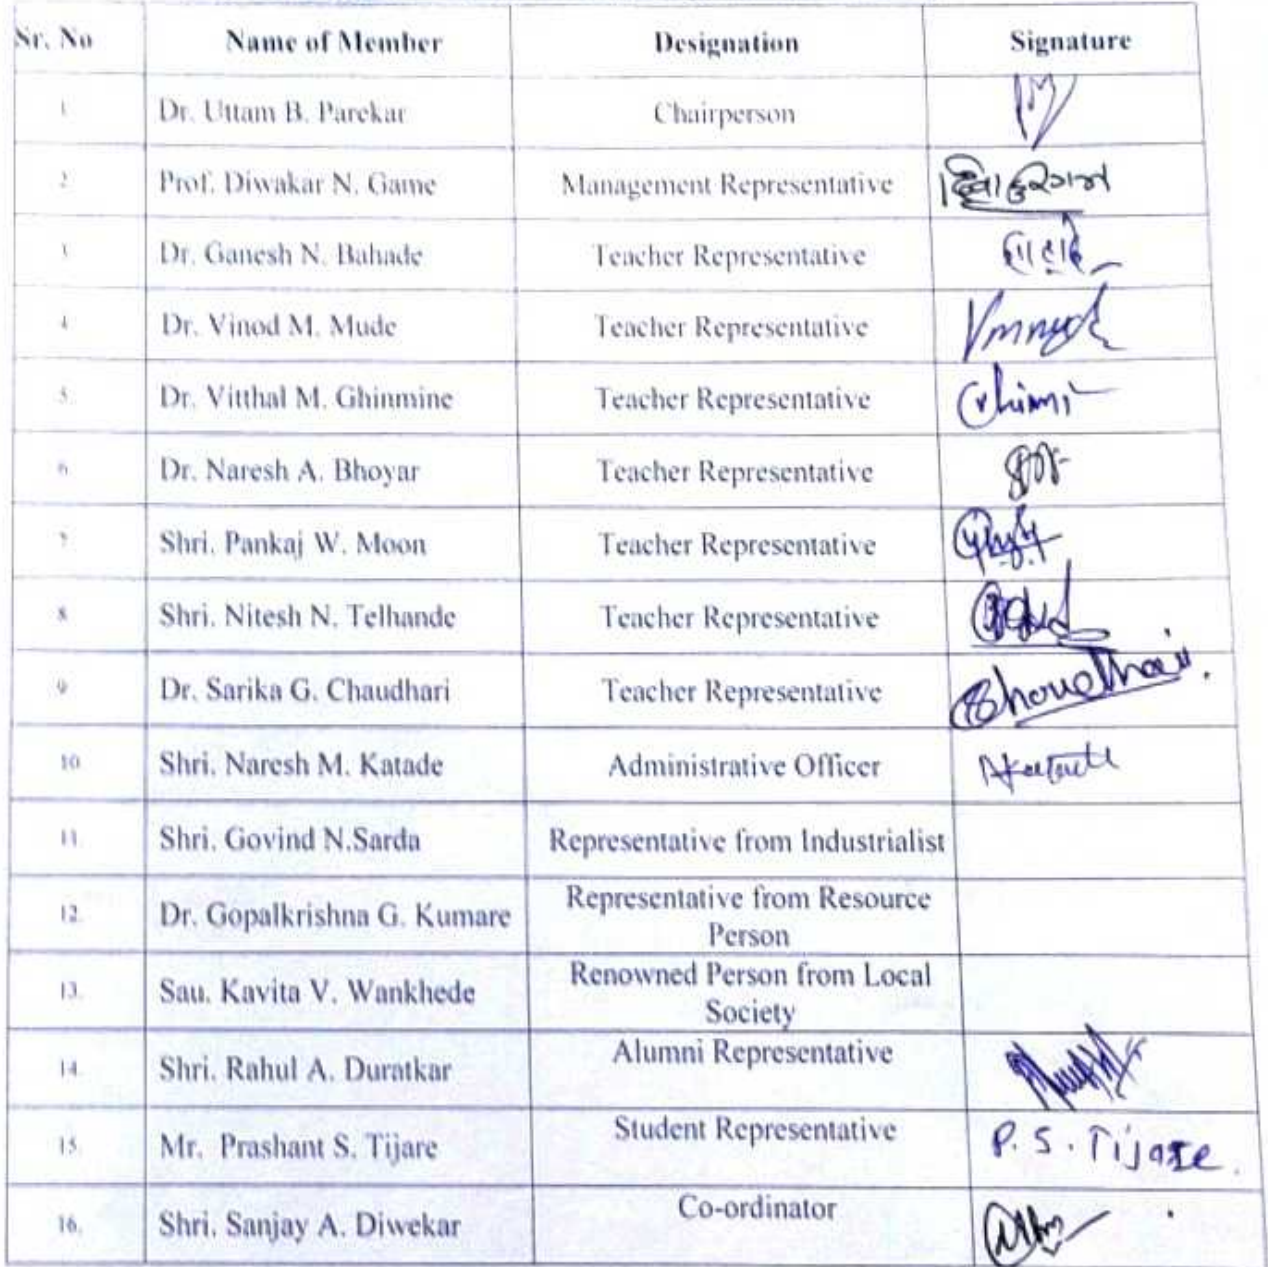 Sr. No Name of Member Designation Signature
1 Dr. Uttam B. Parekar Chairperson
2 Prof. Diwakar N. Game Management Representative
3 Dr. Ganesh N. Bahade Teacher Representative
4 Dr. Vinod M. Mude Teacher Representative
5. Dr. Vitthal M. Ghinmine Teacher Representative
6 Dr. Naresh A. Bhoyar Teacher Representative
7 Shri. Pankaj W. Moon Teacher Representative
8 Shri. Nitesh N. Telhande Teacher Representative
9 Dr. Sarika G. Chaudhari Teacher Representative
10 Shri. Naresh M. Katade Administrative Officer
11 Shri. Govind N.Sarda Representative from Industrialist
12. Dr. Gopalkrishna G. Kumare Representative from Resource
Person
13. Sau. Kavita V. Wankhede Renowned Person from Local
Society
14. Shri. Rahul A. Duratkar Alumni Representative
15. Mr. Prashant S. Tijare Student Representative P. S. Tijare.
16. Shri. Sanjay A. Diwekar Co-ordinator